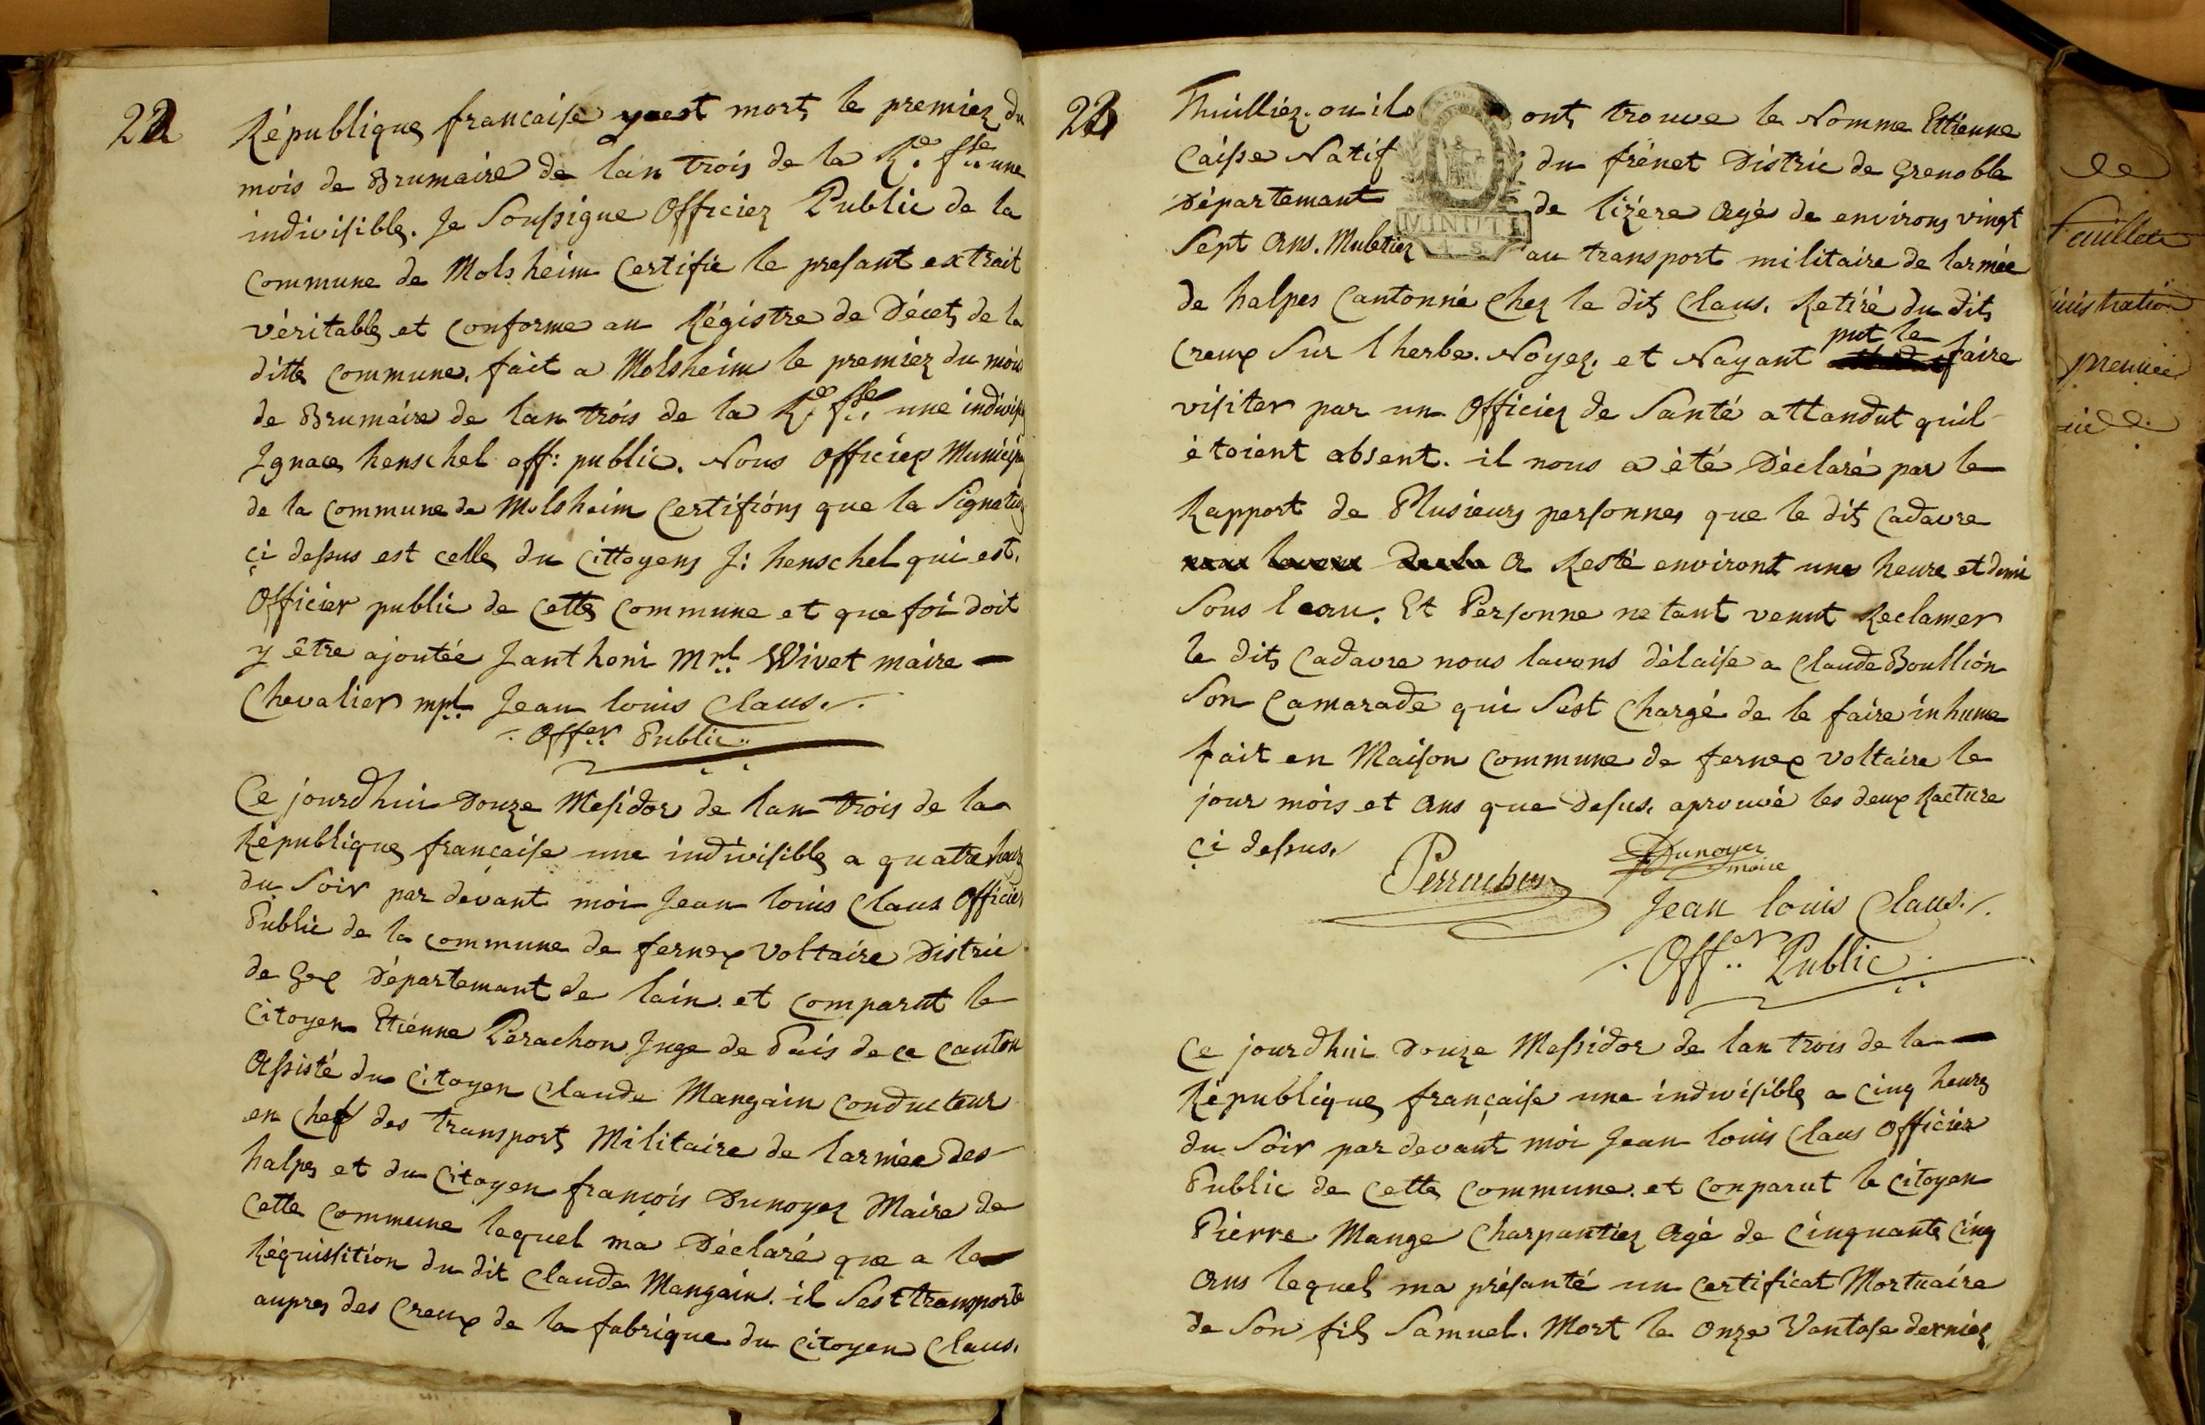 22
République francaise yest mort le premier du
mois de Brumaire de lan trois de la Re. fse. une
indivisible. Je Soussigne Officier Public de la
Commune de Molsheim Certifie le presant extrait
véritable et Conforme au Régistre de Décet de la
ditte Commune, fait a Molsheim le premier du mois
de Brumaire de lan trois de la Re. fse. une indivis
Ignace henschel off: public. Nous officiers Municip
de la Commune de Molsheim Certifions que la Signatu
çi dessus est celle du Cittoyens J: henschel qui est.
Officier public de Cette Commune et que foi doit
y être ajoutée Janthoni Mpl. Wivet maire
Chevalier mpl. Jean louis Claus.
Offer. Public
Ce jourdhui Douze Mesidor de lan trois de la
République française une indivisible a quatre heurs
du Soir par dévant moi Jean louis Claus Officier
Public de la commune de fernex Voltaire Distric
de Gex Département de lain. et comparut le
Citoyen Etiénne Pérachon Juge de Pais de ce Canton
Assisté du Citoyen Claude Mangain Conducteur
en Chef des transport Militaire de larmée des
halpes et du Citoyen françois Dunoyer Maire de
Cette Commune lequel ma Déclaré que a la
Réquisition du dit Claude Mangain. il Sest transporté
aupres des Creux de la fabrique du Citoyen Claus.
23
Thuillier. ou ils ont trouve le Nomme Ettienne
Caisse Natif du frénet Distric de Grenoble
Département de lizére Agé de environs vingt
MINUTE
Sept Ans. Muletier au transport militaire de larmée
de halpes Cantonné Chez le dit Claus. Retiré du dit
Creux Sur lherbe. Noyez. et Nayant put le faire
visiter par un Officier de Santé attandut quil
étoient absent. il nous a été Déclaré par le
Rapport de Plusieurs personnes que le dit Cadavre
a Resté environt une heure et demi
Sous leau. Et Personne netant venut Reclamer
le dit Cadavre nous lavons délaise a Claude Boullion
Son Camarade qui Sest Chargé de le faire inhume
fait en Maison Commune de fernex Voltaire le
jour mois et Ans que desus. aprouvé les deux Racture
çi dessus.
Perrachon
Dunoyer
maire
Jean louis Claus.
Offer. Public
Ce jourdhui Douze Messidor de lan trois de la
République française une indivisible a Cinq heurs
du Soir par devant moi Jean louis Claus Officier
Public de Cette Commune. et Conparut le Citoyen
Piérre Mange Charpantier Agé de Cinquante Cinq
Ans lequel ma présanté un Certificat Mortuaire
de Son fils Samuel. Mort le Onze Vantose dernier
de
feuillet